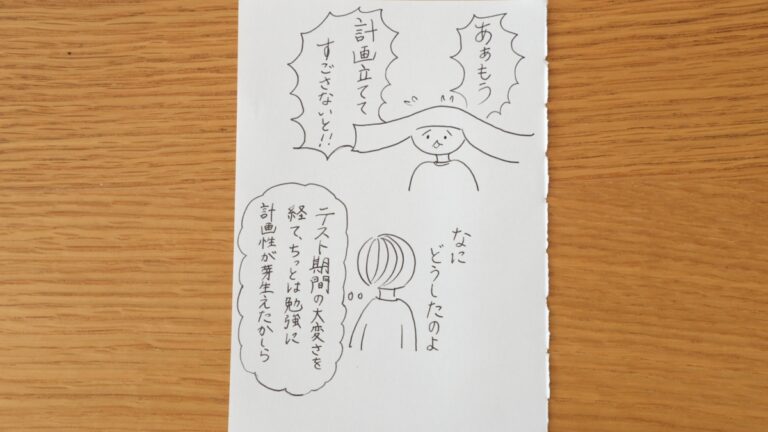 あぁもう
計画立てて
すごさないと!!
なに
どうしたのよ
テスト期間の大変さを
経て、ちっとは勉強に
計画性が芽生えたかしら